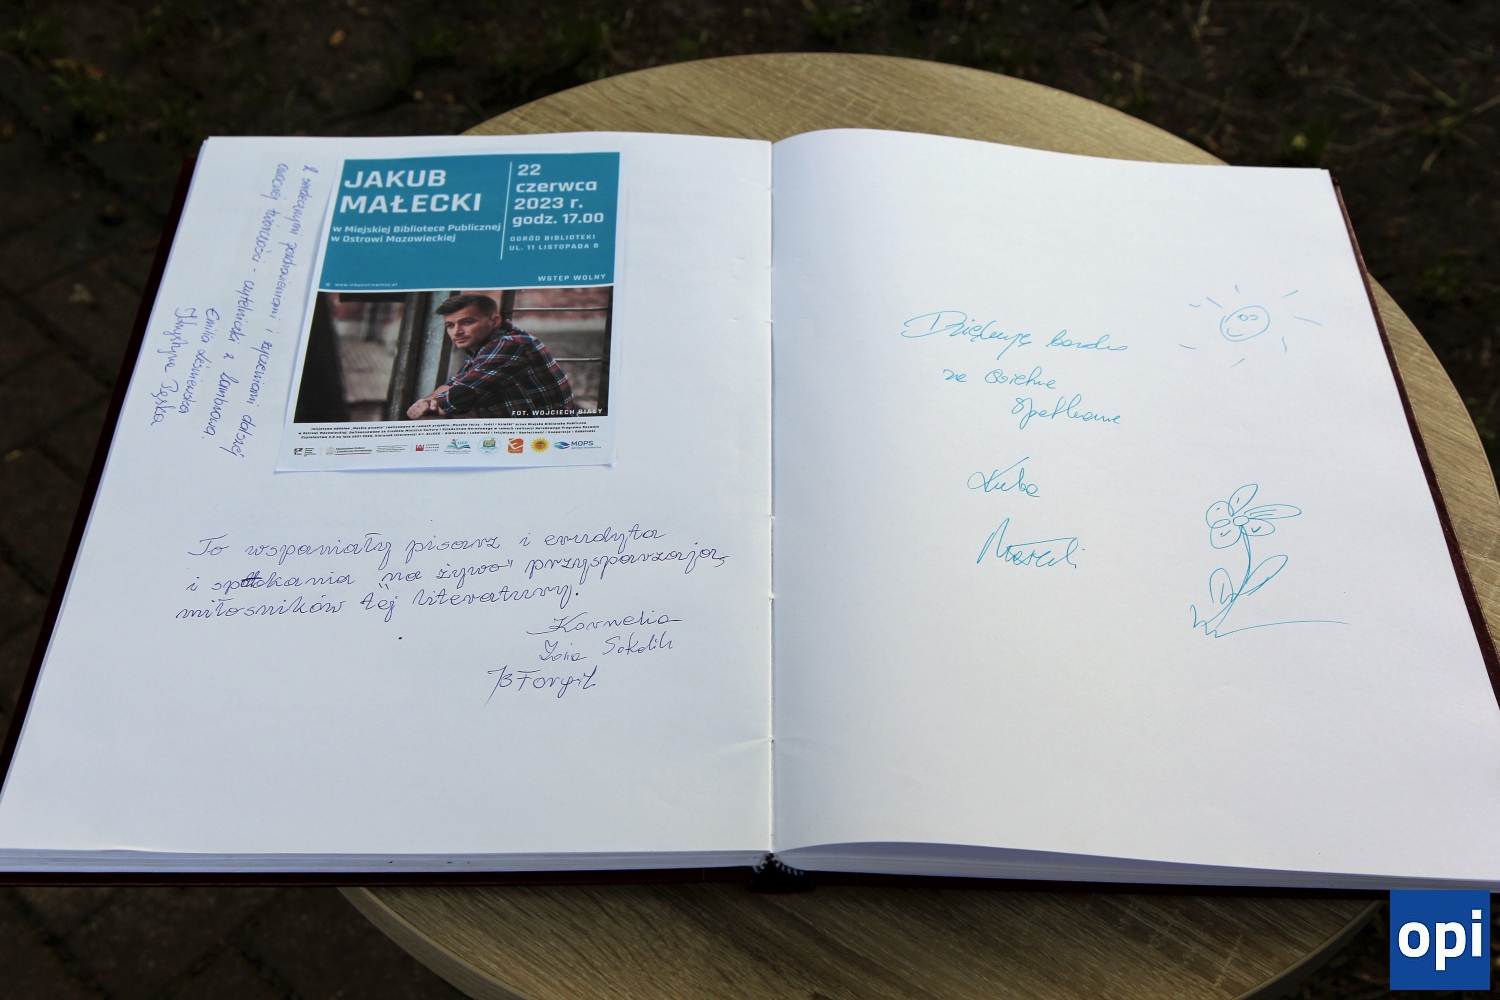 JAKUB
MAŁECKI
w Miejskiej Bibliotece Publicznej
w Ostrowi Mazowieckiej
22
czerwca
2023 r.
godz. 17.00
OGRÓD BIBLIOTEKI
UL. 11 LISTOPADA 8
WSTĘP WOLNY
www.mbpostrowmaz.pl
FOT. WOJCIECH BIAŁY
MOPS
Z serdecznymi pozdrowieniami i życzeniami dalszej
owocnej twórczości - czytelniczka z Zambrowa.
Emilia
Krystyna
To wspaniały pisarz i erudyta
i spotkania "na żywo" przysparzają
miłośników tej literatury.
Kornelia
Zofia
Dziękuję bardzo
za świetne
spotkanie
Kuba
Małecki
opi